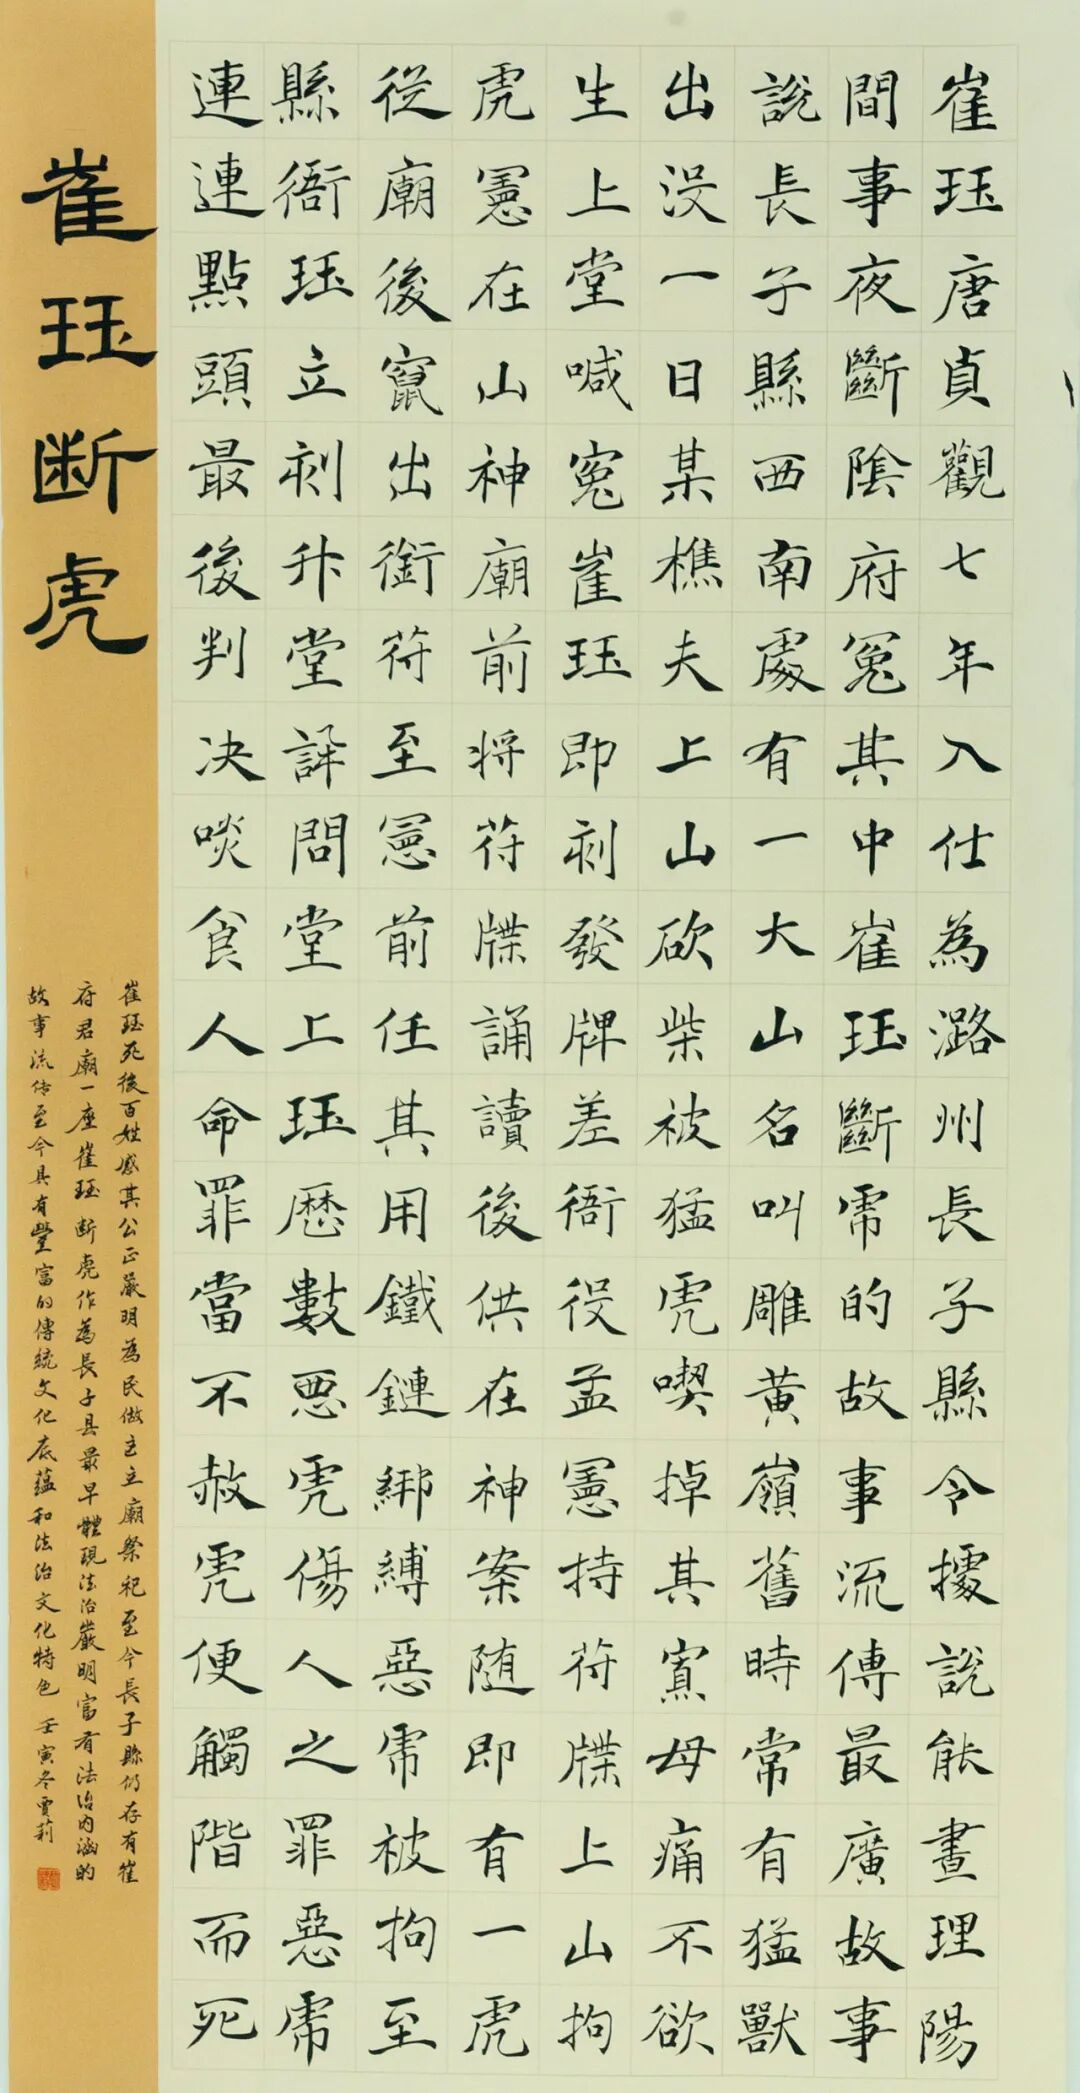 崔珏唐貞觀七年入仕為潞州長子縣令據說能晝理陽
間事夜斷陰府冤其中崔珏斷虎的故事流傳最廣故事
說長子縣西南處有一大山名叫雕黃嶺舊時常有猛獸
出没一日某樵夫上山砍柴被猛虎喫掉其寡母痛不欲
生上堂喊冤崔珏即刻發牌差衙役孟憲持符牒上山拘
虎憲在山神廟前將符牒誦讀後供在神案随即有一虎
從廟後竄出銜符至憲前任其用鐵鏈綁縛惡虎被拘至
縣衙珏立刻升堂訊問堂上珏歷數惡虎傷人之罪惡虎
連連點頭最後判决啖食人命罪當不赦虎便觸階而死
崔珏断虎
崔珏死後百姓感其公正嚴明為民做主立廟祭祀至今長子縣仍存有崔
府君廟一座崔珏断虎作為長子县最早體現法治嚴明富有法治内涵的
故事流传至今具有豐富的傳統文化底蕴和法治文化特色 壬寅冬賈莉